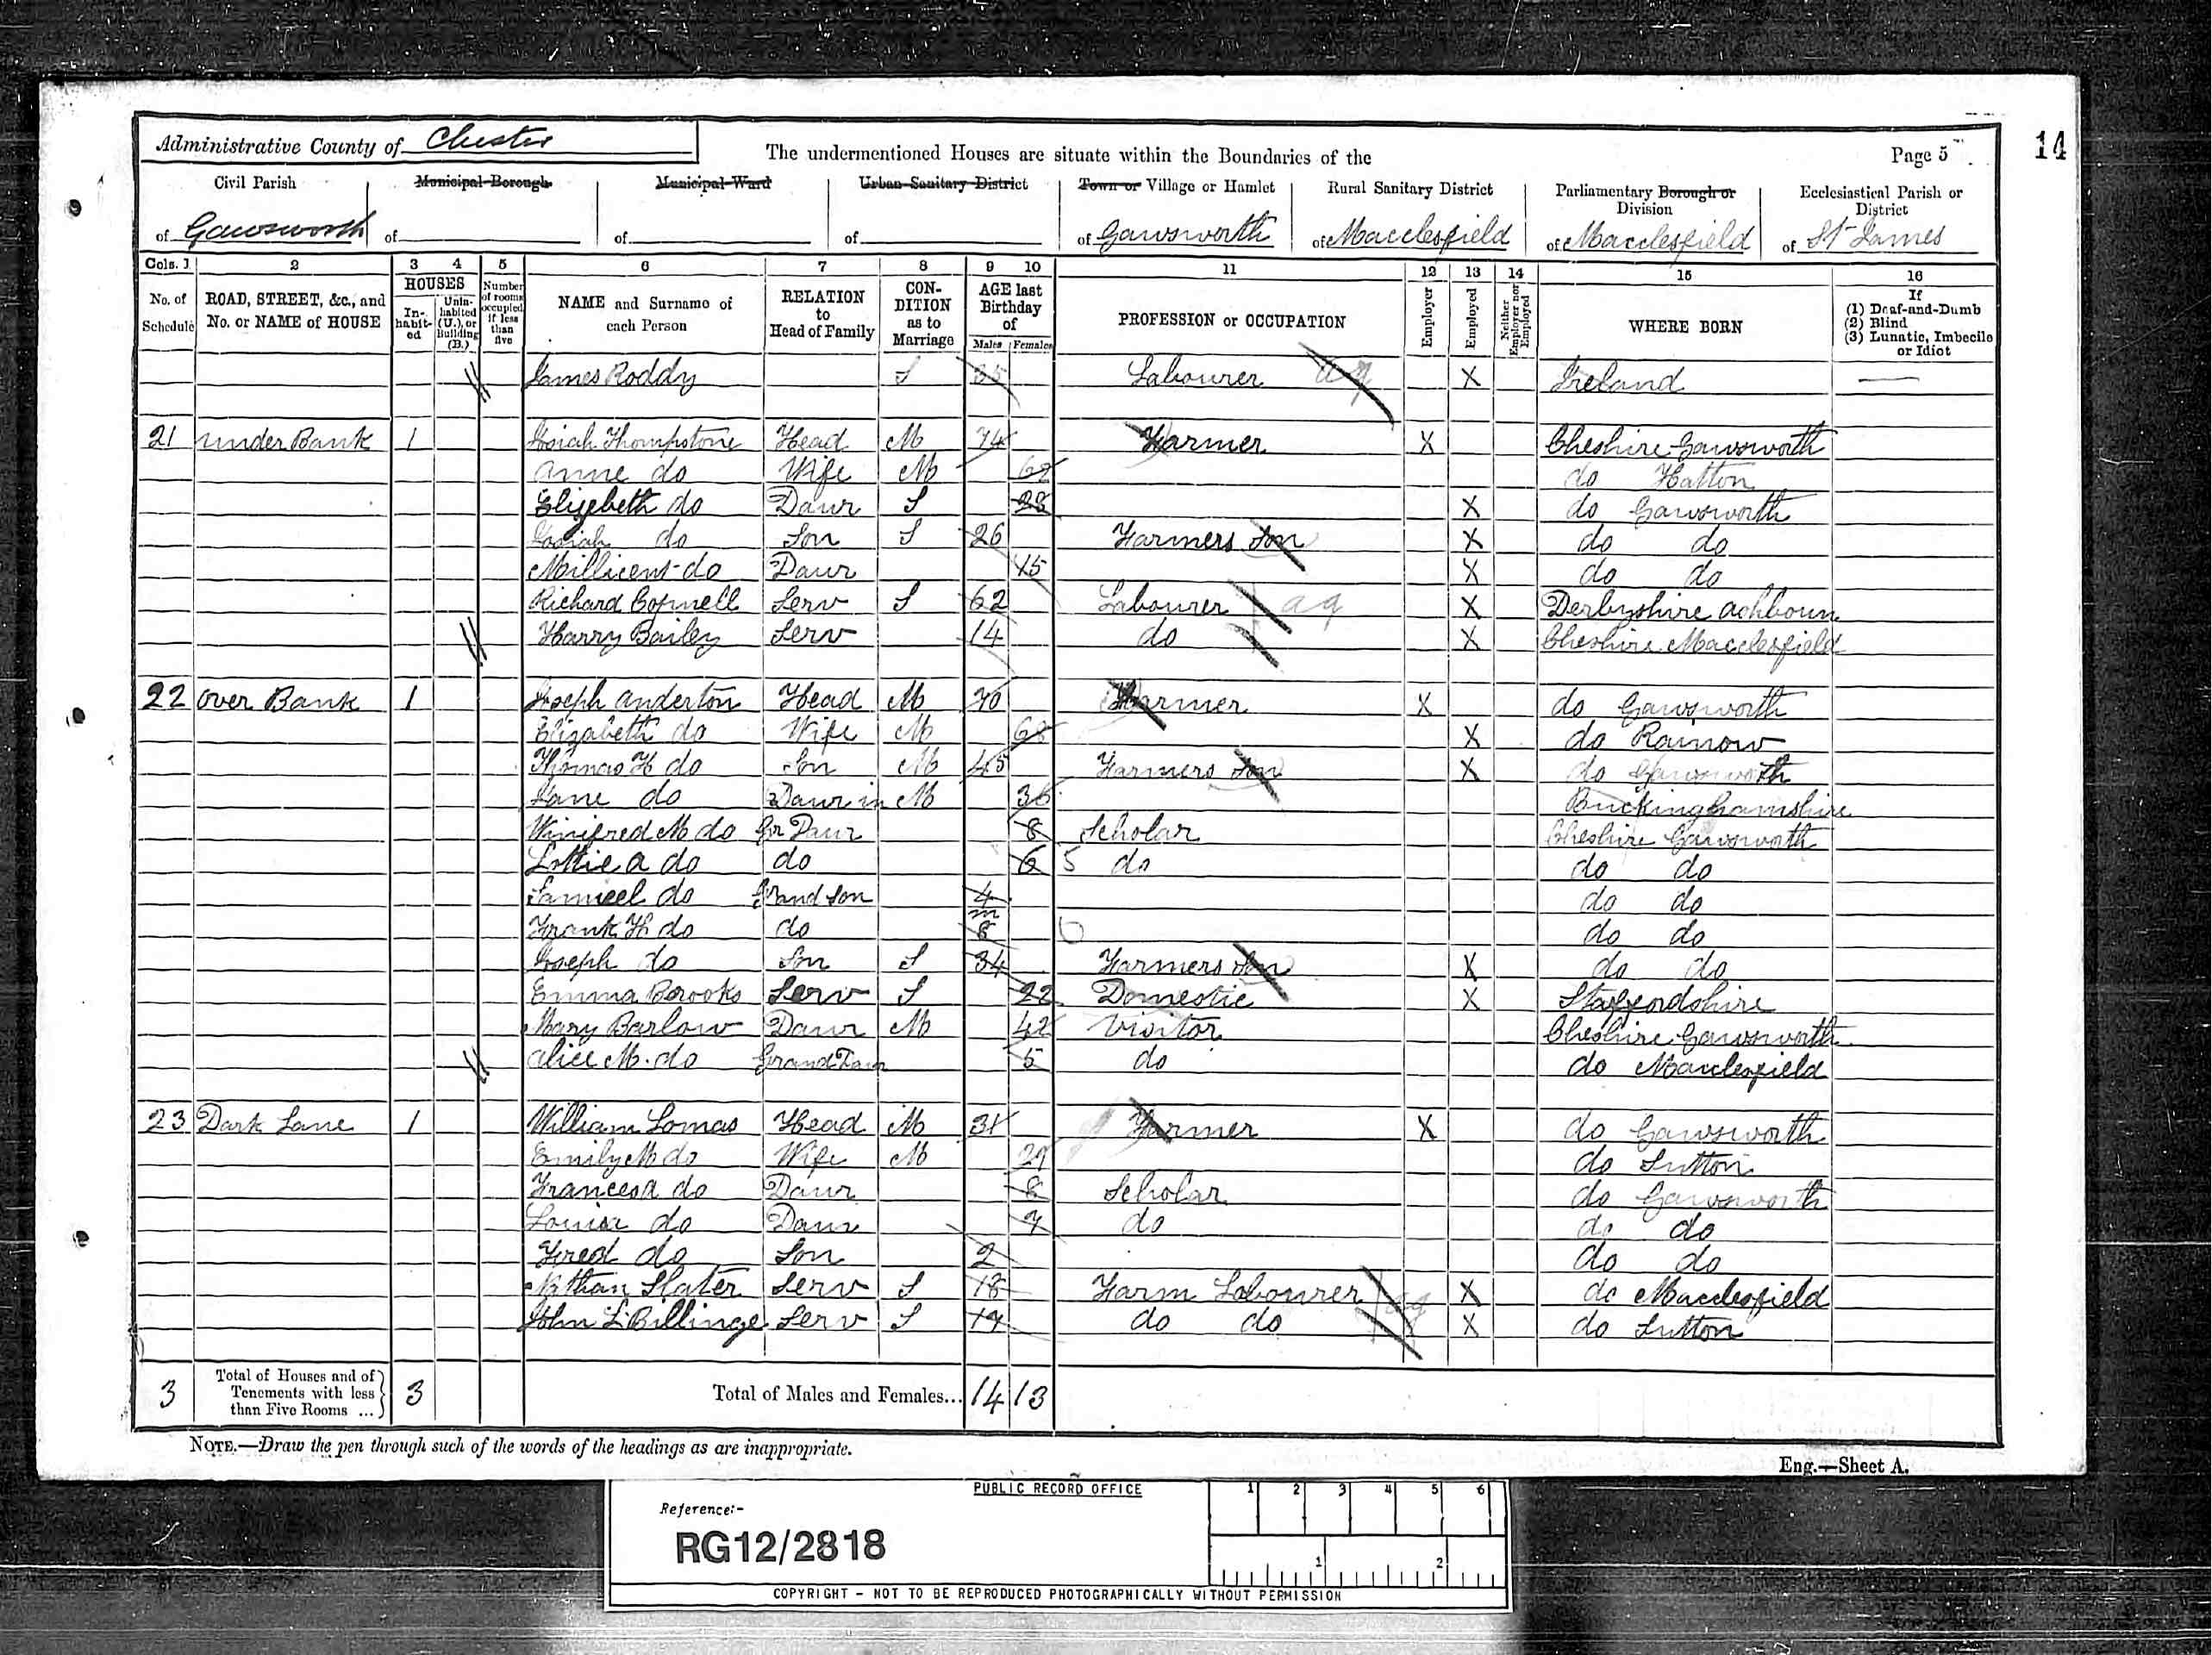 Administrative County of Chester
The undermentioned Houses are situate within the Boundaries of the
Page 5
14
Civil Parish of Gawsworth
Municipal Borough of
Municipal Ward of
Urban Sanitary District of
Town or Village or Hamlet of Gawsworth
Rural Sanitary District of Macclesfield
Parliamentary Borough or Division of Macclesfield
Ecclesiastical Parish or District of St James
Cols. 1 2 3 4 5 6 7 8 9 10 11 12 13 14 15 16
No. of Schedule
ROAD, STREET, &c., and No. or NAME of HOUSE
HOUSES
In-habit-ed
Unin-habited (U.), or Building (B.)
Number of rooms occupied if less than five
NAME and Surname of each Person
RELATION to Head of Family
CON-DITION as to Marriage
AGE last Birthday of
Males Females
PROFESSION or OCCUPATION
Employer
Employed
Neither Employer nor Employed
WHERE BORN
If
(1) Deaf-and-Dumb
(2) Blind
(3) Lunatic, Imbecile or Idiot
James Roddy S 35 Labourer ag X Ireland
21 Under Bank 1 Josiah Thompstone Head M 74 Farmer X Cheshire Gawsworth
Anne do Wife M do Hatton
Elizebeth do Daur S 28 X do Gawsworth
Josiah do Son S 26 Farmers Son X do do
Millicent do Daur 15 X do do
Richard Serv S 62 Labourer ag X Derbyshire Ashbourn
Harry Bailey Serv 14 do X Cheshire Macclesfield
22 Over Bank 1 Joseph Anderton Head M 70 Farmer X do Gawsworth
Elizabeth do Wife M 68 X do Rainow
Thomas H do Son M 45 Farmers Son X do Gawsworth
Jane do Daur in M 36 Buckinghamshire
Winifred M do Gr Daur 8 Scholar Cheshire Gawsworth
Lottie A do do 6 5 do do do
Samuel do Grand Son 4 do do
Frank H do do m 8 do do
Joseph do Son S 34 Farmers Son X do do
Emma Brooks Serv S 22 Domestic X Staffordshire
Mary Barlow Daur M 42 Visitor Cheshire Gawsworth
Alice M. do Grand Daur 5 do do Macclesfield
23 Dark Lane 1 William Lomas Head M 31 Farmer X do Gawsworth
Emily M do Wife M 29 do Sutton
Frances A do Daur 8 Scholar do Gawsworth
Louisa do Daur 7 do do do
Fred do Son 2 do do
Nathan Slater Serv S 18 Farm Labourer ag X do Macclesfield
John L Billinge Serv S 19 do do X do Sutton
3 Total of Houses and of Tenements with less than Five Rooms ... 3 Total of Males and Females... 14 13
NOTE.—Draw the pen through such of the words of the headings as are inappropriate.
Eng.—Sheet A.
PUBLIC RECORD OFFICE
1 2 3 4 5 6
Reference:-
RG12/2818
1 2
COPYRIGHT - NOT TO BE REPRODUCED PHOTOGRAPHICALLY WITHOUT PERMISSION